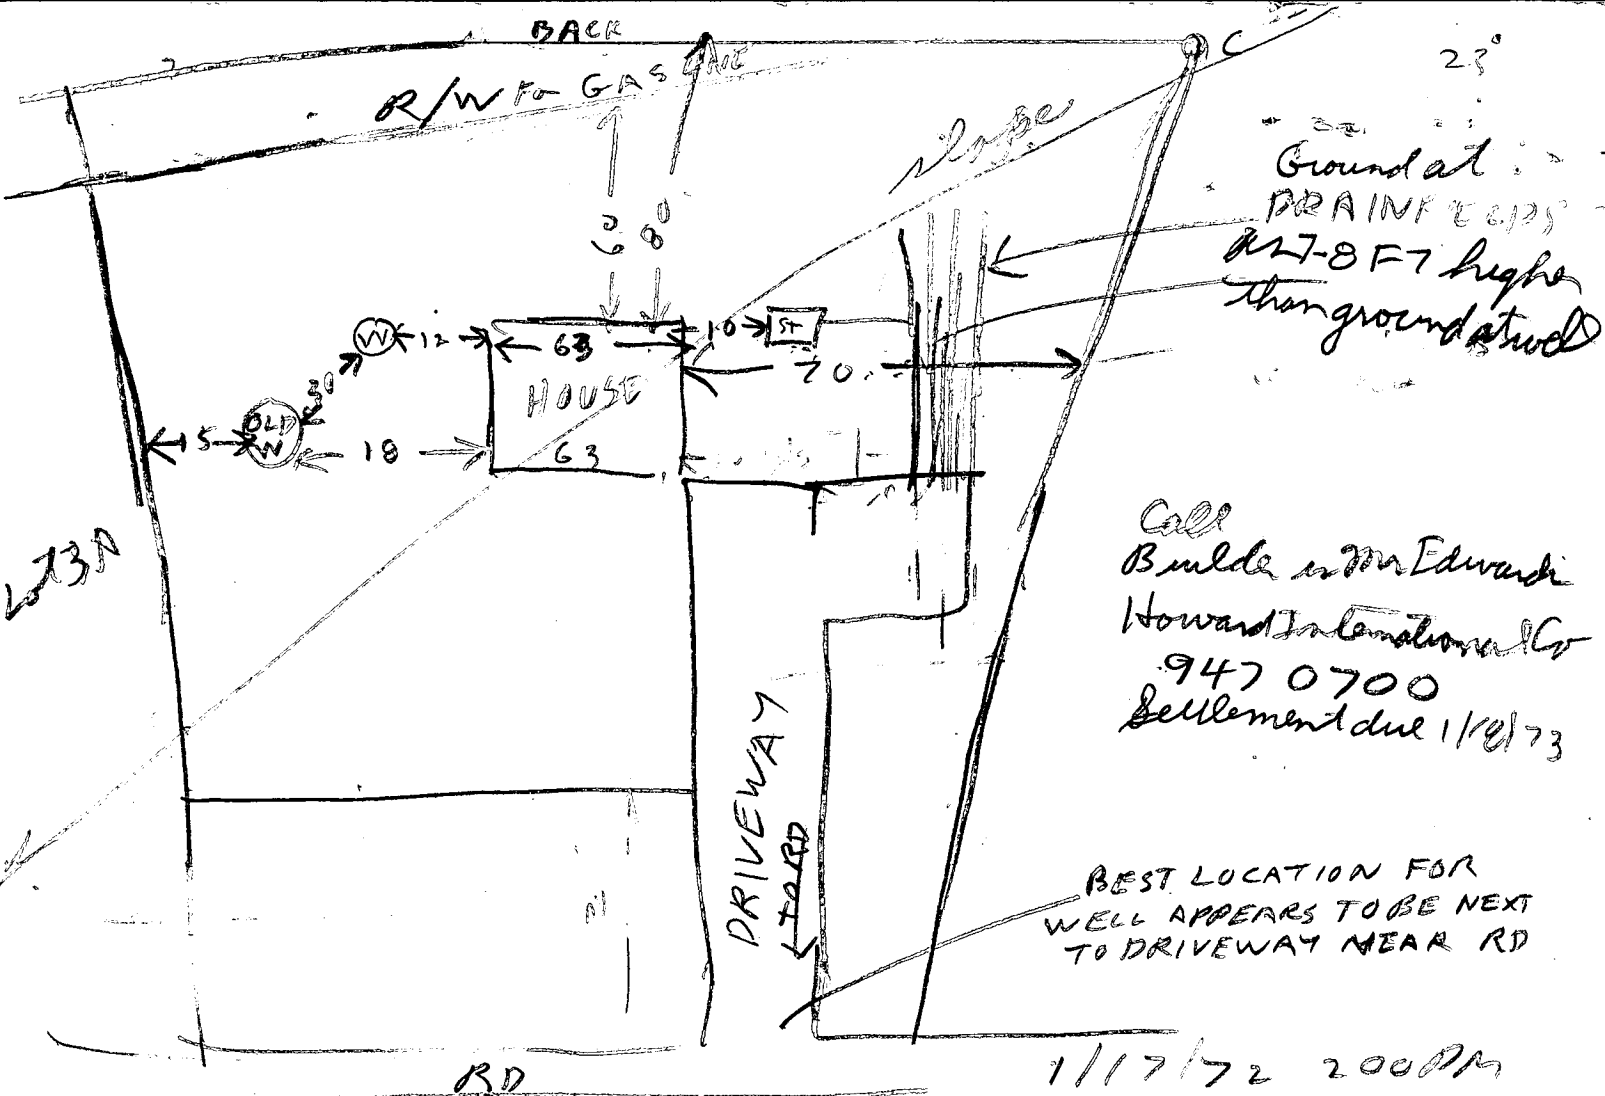 BACK
C
23°
R/W For GAS LINE
Slope
Ground at
DRAINFIELDS
7-8 FT higher
than ground at well
60
80
W
12
63
10
ST
70
HOUSE
30
OLD
W
15
18
63
Lot 3A
Call
Builder is Mr Edwards
Howard International Co
947 0700
Settlement due 1/18/73
DRIVEWAY
TO RD
BEST LOCATION FOR
WELL APPEARS TO BE NEXT
TO DRIVEWAY NEAR RD
RD
1/17/72 200 PM